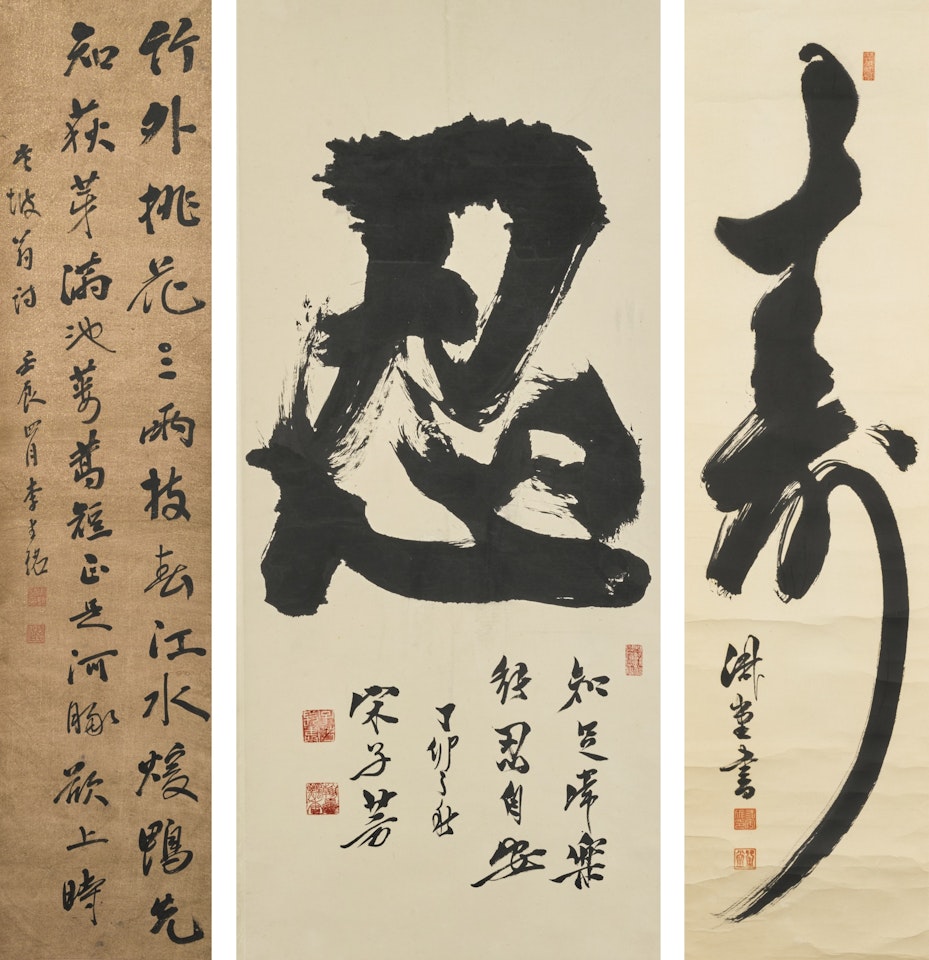 竹外桃花三兩枝春江水煖鴨先
知荻芽滿池蔞蒿短正是河豚欲上時
東坡翁詩 壬辰四月李
忍
知足常樂
能忍自安
丁卯之秋
宋子芳
壽
渊堂書